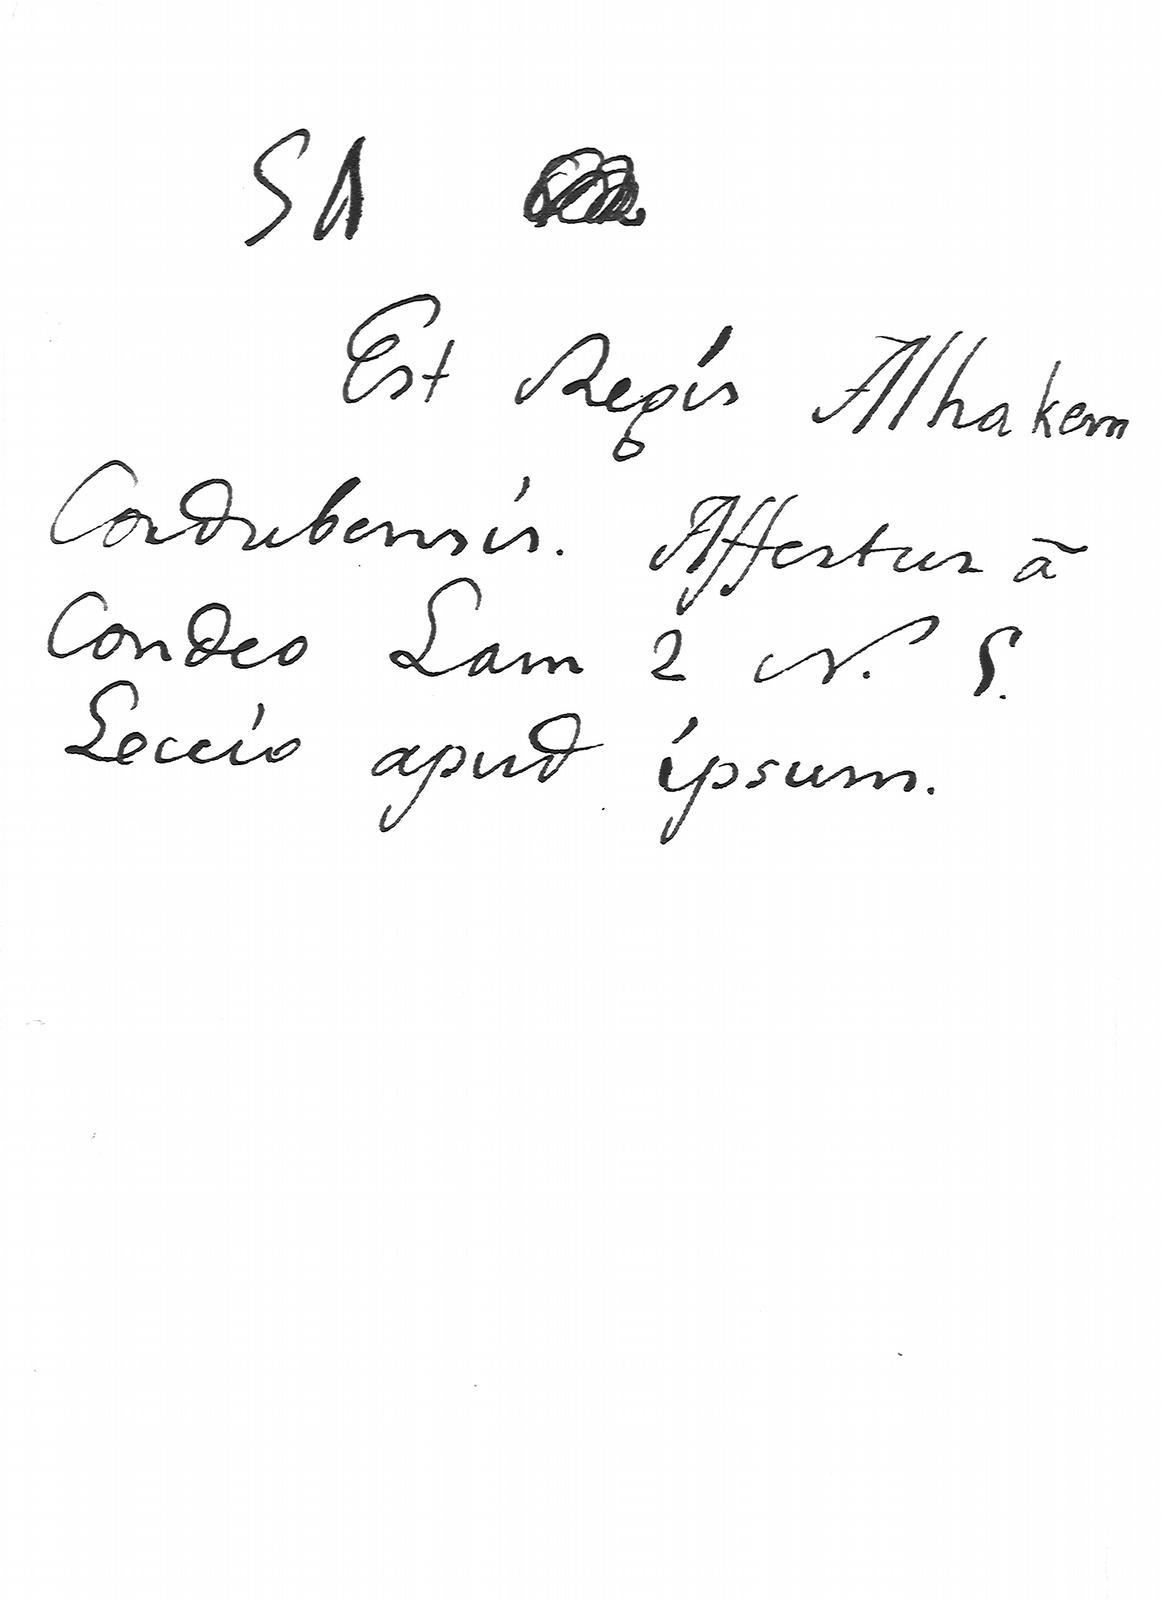 SA
Est Regis Alhakem
Cordubensis. Affertur ā
Condeo Lam 2 N. 5.
Leccio apud ipsum.